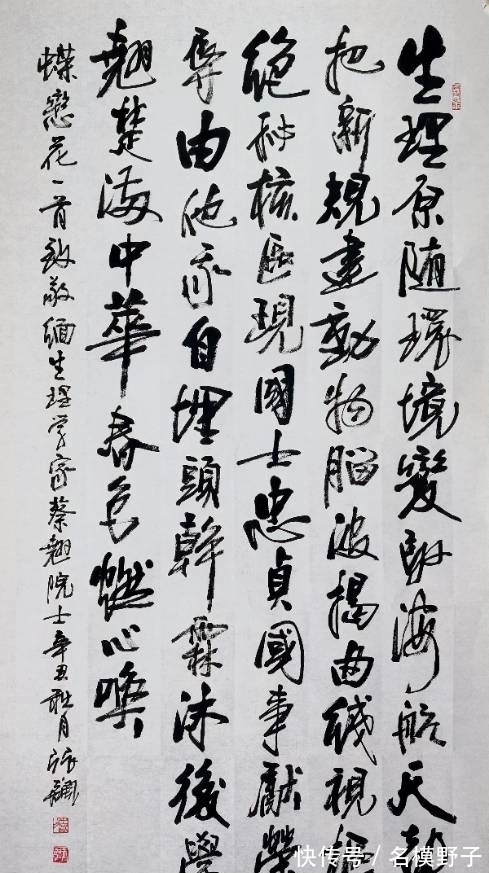 生理原随環境變陟海航天都
把新規建動物腦波揭曲綫視
絕秘核區現國士忠貞國事獻榮
辱由他我自埋頭幹霖沐後學
翹楚滿中華春色燃心喚
蝶戀花一首致敬緬生理学家蔡翹院士辛丑月
快传号/名模野子